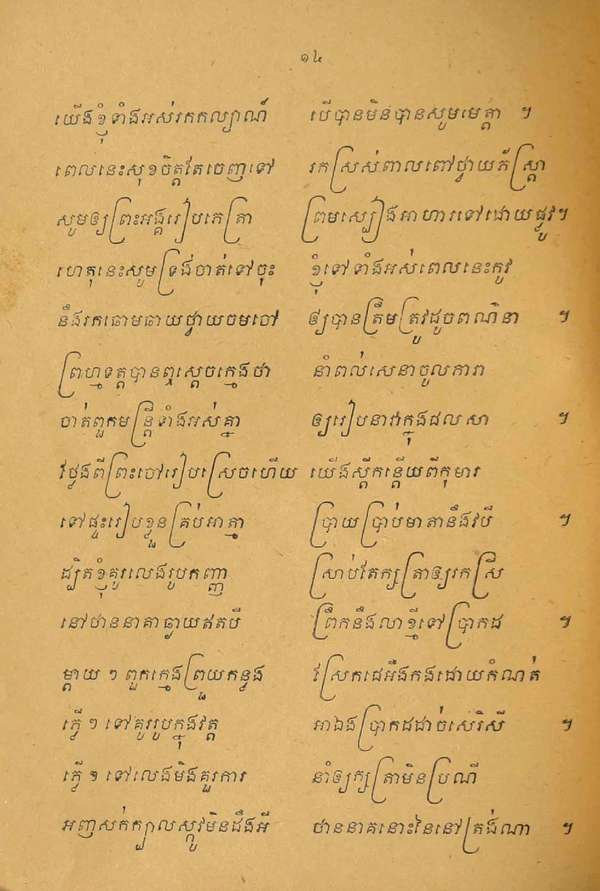 ១៤
យើងខ្ញុំទាំងអស់រកកល្យាណ៍ បើបានមិនបានសូមមេត្តា ។
ពេលនេះសុខចិត្តតែចេញទៅ រកស្រស់ពាលពៅថ្វាយភ័ស្ត្រា
សូមឲ្យព្រះអង្គរៀបភេត្រា ព្រមស្បៀងអាហារទៅដោយផ្លូវ។
ហេតុនេះសូមទ្រង់ចាត់ទៅចុះ ខ្ញុំទៅទាំងអស់ពេលនេះកូវ
នឹងរកឆោមឆាយថ្វាយចមចៅ ឲ្យបានត្រឹមត្រូវដូចពណ៌នា ។
ព្រហ្មទត្តបានឮស្ដេចក្មេងថា នាំពល់សេនាចូលការា
ចាត់ពួកមន្ត្រីទាំងអស់គ្នា ឲ្យរៀបនាវាក្នុងជលសា ។
វៃថ្លងពីព្រះចៅរៀបស្រេចហើយ យើងស្ដីកន្តើយពីកុមារ
ទៅផ្ទះរៀបខ្លួនគ្រប់អាត្មា ប្រាយប្រាប់មាតានឹងវបី ។
ដ្បិតខ្ញុំគូរលេងរូបកញ្ញា ស្រាប់តែក្សត្រាឲ្យរកស្រី
នៅឋាននាគាឆ្ងាយឥតបី ព្រឹកនឹងលាខ្មីទៅប្រាកដ ។
ម្ដាយ ៗ ពួកក្មេងព្រួយកន្ទង វៃស្រែកដេអឺងកងដោយកំណត់
ភ្វើ ៗ ទៅគូររូបក្នុងវត្ត អាឯងប្រាកដដាច់សេរិសី ។
ភ្វើ ៗ ទៅលេងមិងគួរការ នាំឲ្យក្សត្រាមិនប្រណី
អញសក់ក្បាលស្កូវមិនដឹងអី ឋាននាគនោះនៃនៅត្រង់ណា ។